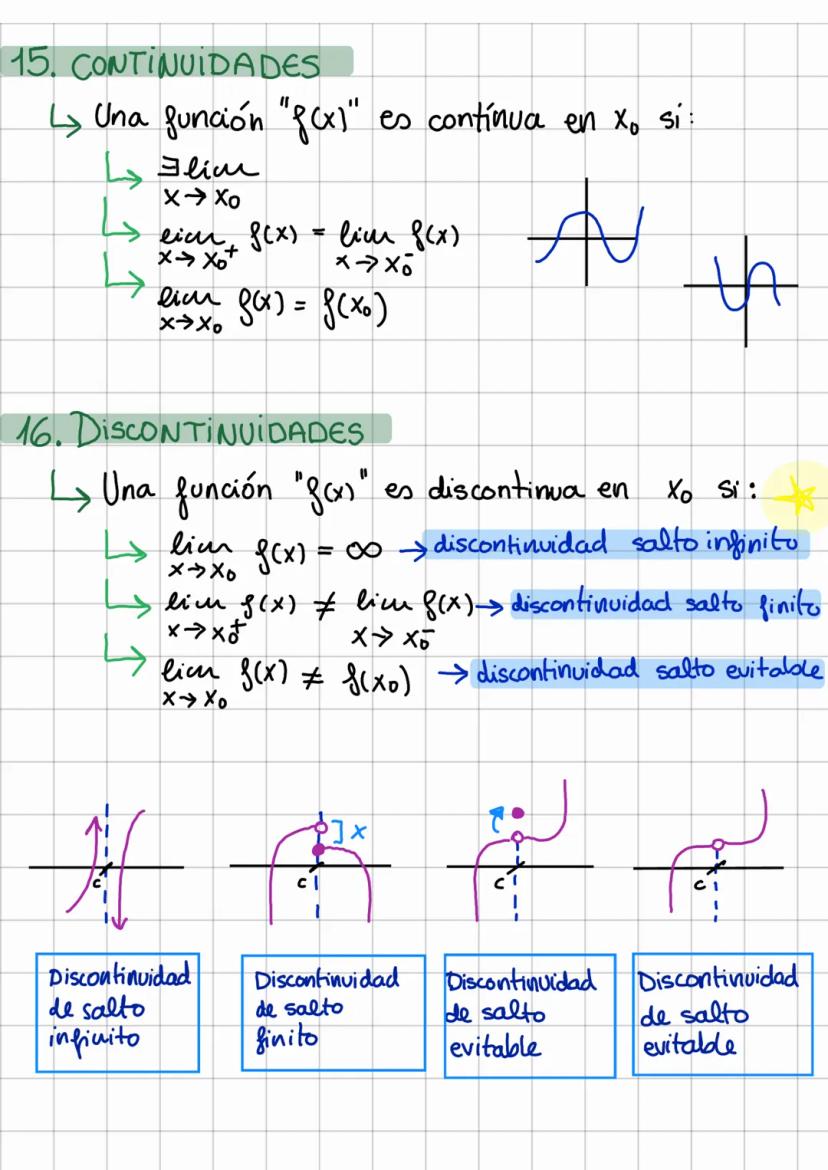 15. CONTINUIDADES
↳ Una función "f(x)" es contínua en x₀ si:
↳ ∃ lim
x → x₀
↳ lim f(x) = lim f(x)
x → x₀⁺ x → x₀⁻
↳ lim f(x) = f(x₀)
x → x₀
16. DISCONTINUIDADES
↳ Una función "f(x)" es discontinua en x₀ si:
↳ lim f(x) = ∞ → discontinuidad salto infinito
x → x₀
↳ lim f(x) ≠ lim f(x) → discontinuidad salto finito
x → x₀⁺ x → x₀⁻
↳ lim f(x) ≠ f(x₀) → discontinuidad salto evitable
x → x₀
] x
c c c c
Discontinuidad
de salto
infinito
Discontinuidad
de salto
finito
Discontinuidad
de salto
evitable
Discontinuidad
de salto
evitable